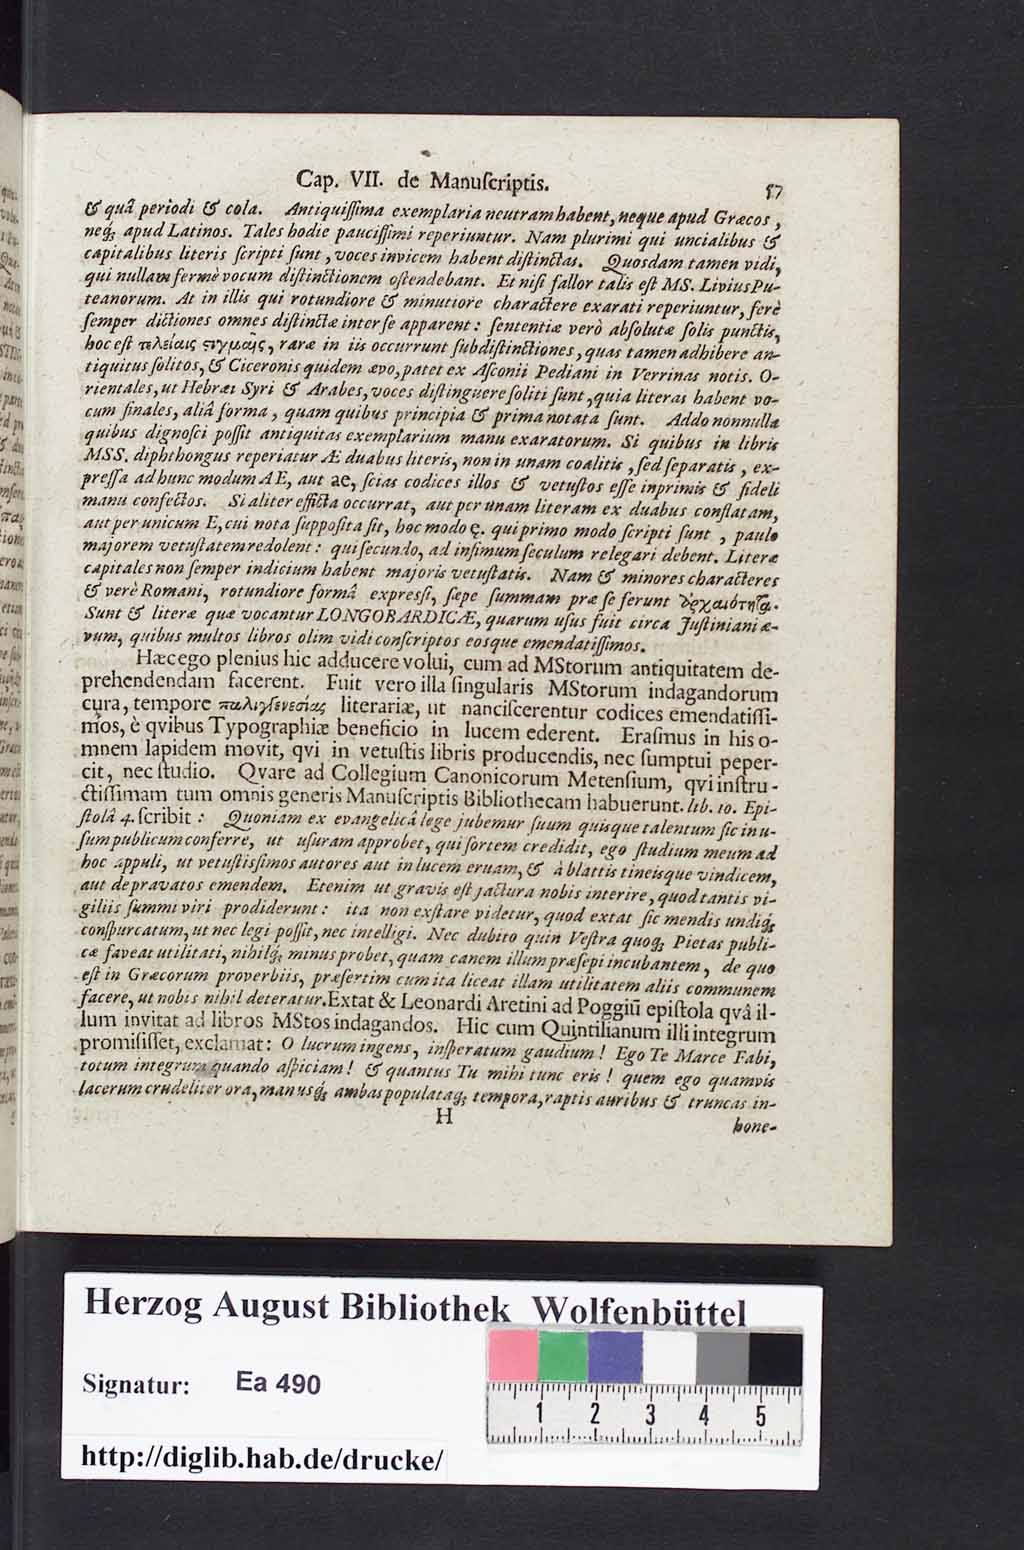 Cap. VII. de Manuſcriptis. 57
& quâ periodi & cola. Antiquiſſima exemplaria neutram habent, neque apud Græcos,
neq; apud Latinos. Tales hodie pauciſſimi reperiuntur. Nam plurimi qui uncialibus &
capitalibus literis ſcripti ſunt, voces invicem habent diſtinctas. Quosdam tamen vidi,
qui nullam fermè vocum diſtinctionem oſtendebant. Et niſi fallor talis eſt MS. Livius Pu-
teanorum. At in illis qui rotundiore & minutiore charactere exarati reperiuntur, ferè
ſemper dictiones omnes diſtinctæ inter ſe apparent: ſententiæ verò abſolutæ ſolis punctis,
hoc eſt τελείαις ϛιγμαῖς, raræ in iis occurrunt ſubdiſtinctiones, quas tamen adhibere an-
tiquitus ſolitos, & Ciceronis quidem ævo, patet ex Aſconii Pediani in Verrinas notis. O-
rientales, ut Hebræi Syri & Arabes, voces diſtinguere ſoliti ſunt, quia literas habent vo-
cum finales, aliâ forma, quam quibus principia & prima notata ſunt. Addo nonnulla
quibus dignoſci poſſit antiquitas exemplarium manu exaratorum. Si quibus in libris
MSS. diphthongus reperiatur Æ duabus literis, non in unam coalitis, ſed ſeparatis, ex-
preſſa ad hunc modum AE, aut ae, ſcias codices illos & vetuſtos eſſe inprimis & fideli
manu confectos. Si aliter efficta occurrat, aut per unam literam ex duabus conflatam,
aut per unicum E, cui nota ſuppoſita ſit, hoc modo ę. qui primo modo ſcripti ſunt, paulo
majorem vetuſtatem redolent: qui ſecundo, ad infimum ſeculum relegari debent. Literæ
capitales non ſemper indicium habent majoris vetuſtatis. Nam & minores characteres
& verè Romani, rotundiore formâ expreſſi, ſæpe ſummam præ ſe ferunt ἀρχαιότητα.
Sunt & literæ quæ vocantur LONGOBARDICÆ, quarum uſus fuit circa Juſtiniani æ-
vum, quibus multos libros olim vidi conſcriptos eosque emendatiſſimos.
Hæc ego plenius hic adducere volui, cum ad MStorum antiquitatem de-
prehendendam facerent. Fuit vero illa ſingularis MStorum indagandorum
cura, tempore παλιγγενεσίας literariæ, ut nanciſcerentur codices emendatiſſi-
mos, è qvibus Typographiæ beneficio in lucem ederent. Eraſmus in his o-
mnem lapidem movit, qvi in vetuſtis libris producendis, nec ſumptui peper-
cit, nec ſtudio. Qvare ad Collegium Canonicorum Metenſium, qvi inſtru-
ctiſſimam tum omnis generis Manuſcriptis Bibliothecam habuerunt. lib. 10. Epi-
ſtolâ 4. ſcribit: Quoniam ex evangelicâ lege jubemur ſuum quisque talentum ſic in u-
ſum publicum conferre, ut uſuram approbet, qui ſortem credidit, ego ſtudium meum ad
hoc appuli, ut vetuſtiſſimos autores aut in lucem eruam, & à blattis tineisque vindicem,
aut depravatos emendem. Etenim ut gravis eſt jactura nobis interire, quod tantis vi-
giliis ſummi viri prodiderunt: ita non exſtare videtur, quod extat ſic mendis undiq;
conſpurcatum, ut nec legi poſſit, nec intelligi. Nec dubito quin Veſtra quoq; Pietas publi-
cæ faveat utilitati, nihilq; minus probet, quam canem illum præſepi incubantem, de quo
eſt in Græcorum proverbiis, præſertim cum ita liceat illam utilitatem aliis communem
facere, ut nobis nihil deteratur. Extat & Leonardi Aretini ad Poggiũ epiſtola qvâ il-
lum invitat ad libros MStos indagandos. Hic cum Quintilianum illi integrum
promiſiſſet, exclamat: O lucrum ingens, inſperatum gaudium! Ego Te Marce Fabi,
totum integrum quando aſpiciam! & quantus Tu mihi tunc eris! quem ego quamvis
lacerum crudeliter ora, manusq; ambas populataq; tempora, raptis auribus & truncas in-
H
hone-
Herzog August Bibliothek Wolfenbüttel
Signatur: Ea 490
1 2 3 4 5
http://diglib.hab.de/drucke/